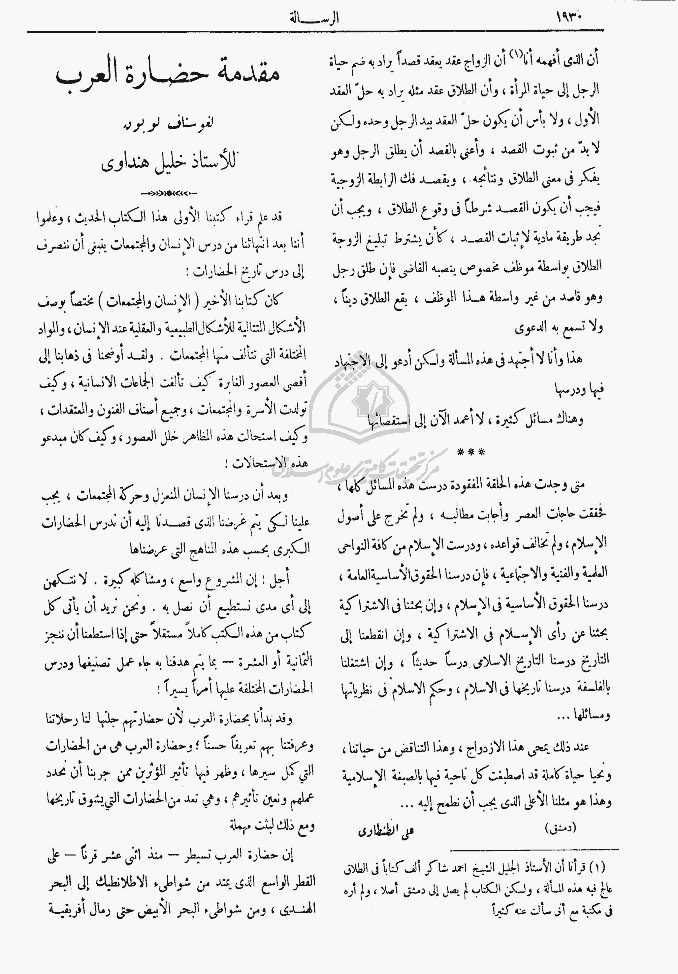 ١٩٣٠
الرســـالة
أن الذى أفهمه أنا(١) أن الزواج عقد يعقد قصداً يراد به ضم حياة
الرجل إلى حياة المرأة ، وأن الطلاق عقد مثله يراد به حلّ العقد
الأول ، ولا بأس أن يكون حلّ العقد بيد الرجل وحده ولكن
لا بدّ من ثبوت القصد ، وأعني بالقصد أن يطلق الرجل وهو
يفكر فى معنى الطلاق ونتائجه ، ويقصد فك الرابطة الزوجية
فيجب أن يكون القصد شرطاً فى وقوع الطلاق ، ويجب أن
نجد طريقة مادية لإثبات القصد ، كأن يشترط تبليغ الزوجة
الطلاق بواسطة موظف مخصوص ينصبه القاضى فإن طلق رجل
وهو قاصد من غير واسطة هـذا الموظف ، يقع الطلاق ديناً ،
ولا تسمع به الدعوى
هذا وأنا لا أجتهد فى هذه المسألة ولكن أدعو إلى الاجتهاد
فيها ودرسها
وهناك مسائل كثيرة ، لا أعمد الآن إلى استقصائها
***
متى وجدت هذه الحلقة المفقودة درست هذه المسائل كلها ،
فحققت حاجات العصر وأجابت مطالبـه ، ولم تخرج على أصول
الإسلام ، ولم تخالف قواعده ، ودرست الإسلام من كافة النواحى
العلمية والفنية والاجتماعية ، فإن درسنا الحقوق الأساسية العامة ،
درسنا الحقوق الأساسية فى الإسلام ، وإن بحثنا فى الاشتراكية
بحثنا عن رأى الإسـلام فى الاشتراكية ، وإن انقطعنا إلى
التاريخ درسنا التاريخ الاسلامى درساً حديثاً ، وإن اشتغلنا
بالفلسفة درسنا تاريخها فى الاسلام ، وحكم الاسلام فى نظرياتها
ومسائلها ...
عند ذلك يمحى هذا الازدواج ، وهذا التناقض من حياتنا ،
ونحيا حياة كاملة قد اصطبغت كل ناحية فيها بالصبغة الإسلامية
وهذا هو مثلنا الأعلى الذى يجب أن نطمح إليه ...
(دمشق) على الطنطاوى
(١) قرأنا أن الأستاذ الجليل الشيخ احمد شاكر ألف كتاباً فى الطلاق
عالج فيه هذه المسألة ، ولسكن الكتاب لم يصل إلى دمشق أصلا ، ولم أره
فى مكتبة مع أنى سألت عنه كثيراً
مقدمة حضارة العرب
لغوستاف لوبون
للأستاذ خليل هنداوى
قد علم قراء كتبنا الأولى هذا الكتاب الحديث ، وعلموا
أننا بعد انتهائنا من درس الإنسان والمجتمعات ينبغى أن ننصرف
إلى درس تاريخ الحضارات !
كان كتابنا الأخير ( الإنسان والمجتمعات ) مختصاً بوصف
الأشكال المتتالية للأشكال الطبيعية والعقلية عند الإنسان ، والمواد
المختلفة التى تتألف منها المجتمعات . ولقـد أوضحنا فى ذهابنا إلى
أقصى العصور الغابرة كيف تألفت الجماعات الانسانية ، وكيف
تولدت الأسرة والمجتمعات ، وجميع أصناف الفنون والمعتقدات ،
وكيف استحالت هذه المظاهر خلل العصور ، وكيف كان مبدعو
هذه الاستحالات !
وبعد أن درسنا الإنسان المنعزل وحركة المجتمعات ، يجب
علينا لكى يتم غرضنا الذى قصدنا إليه أن ندرس الحضارات
الكبرى بحسب هذه المناهج التى عرضناها
أجل ! إن المشروع واسع ، ومشاكله كبيرة . لا نتكهن
إلى أى مدى نستطيع أن نصل به . ونحن نريد أن يأتى كل
كتاب من هذه الكتب كاملاً مستقلاً حتى إذا استطعنا أن ننجز
الثمانية أو العشرة — بما يتم هدفنا به جاء عمل تصنيفها ودرس
الحضارات المختلفة عليها أمراً يسيراً !
وقد بدأنا بحضارة العرب لأن حضارتهم جلتها لنا رحلاتنا
وعرفتنا بهم تعريفاً حسناً ؛ وحضارة العرب هى من الحضارات
التي كمل سيرها ، وظهر فيها تأثير المؤثرين ممن جربنا أن نحدد
عملهم ونعين تأثيرهم ، وهى تعد من الحضارات التي يشوق تاريخها
ومع ذلك لبثت مهملة
إن حضارة العرب تسيطر — منذ اثنى عشر قرناً — على
القطر الواسع الذى يمتد من شواطىء الاطلانطيك إلى البحر
الهندى ، ومن شواطىء البحر الأبيض حتى رمال أفريقيـة